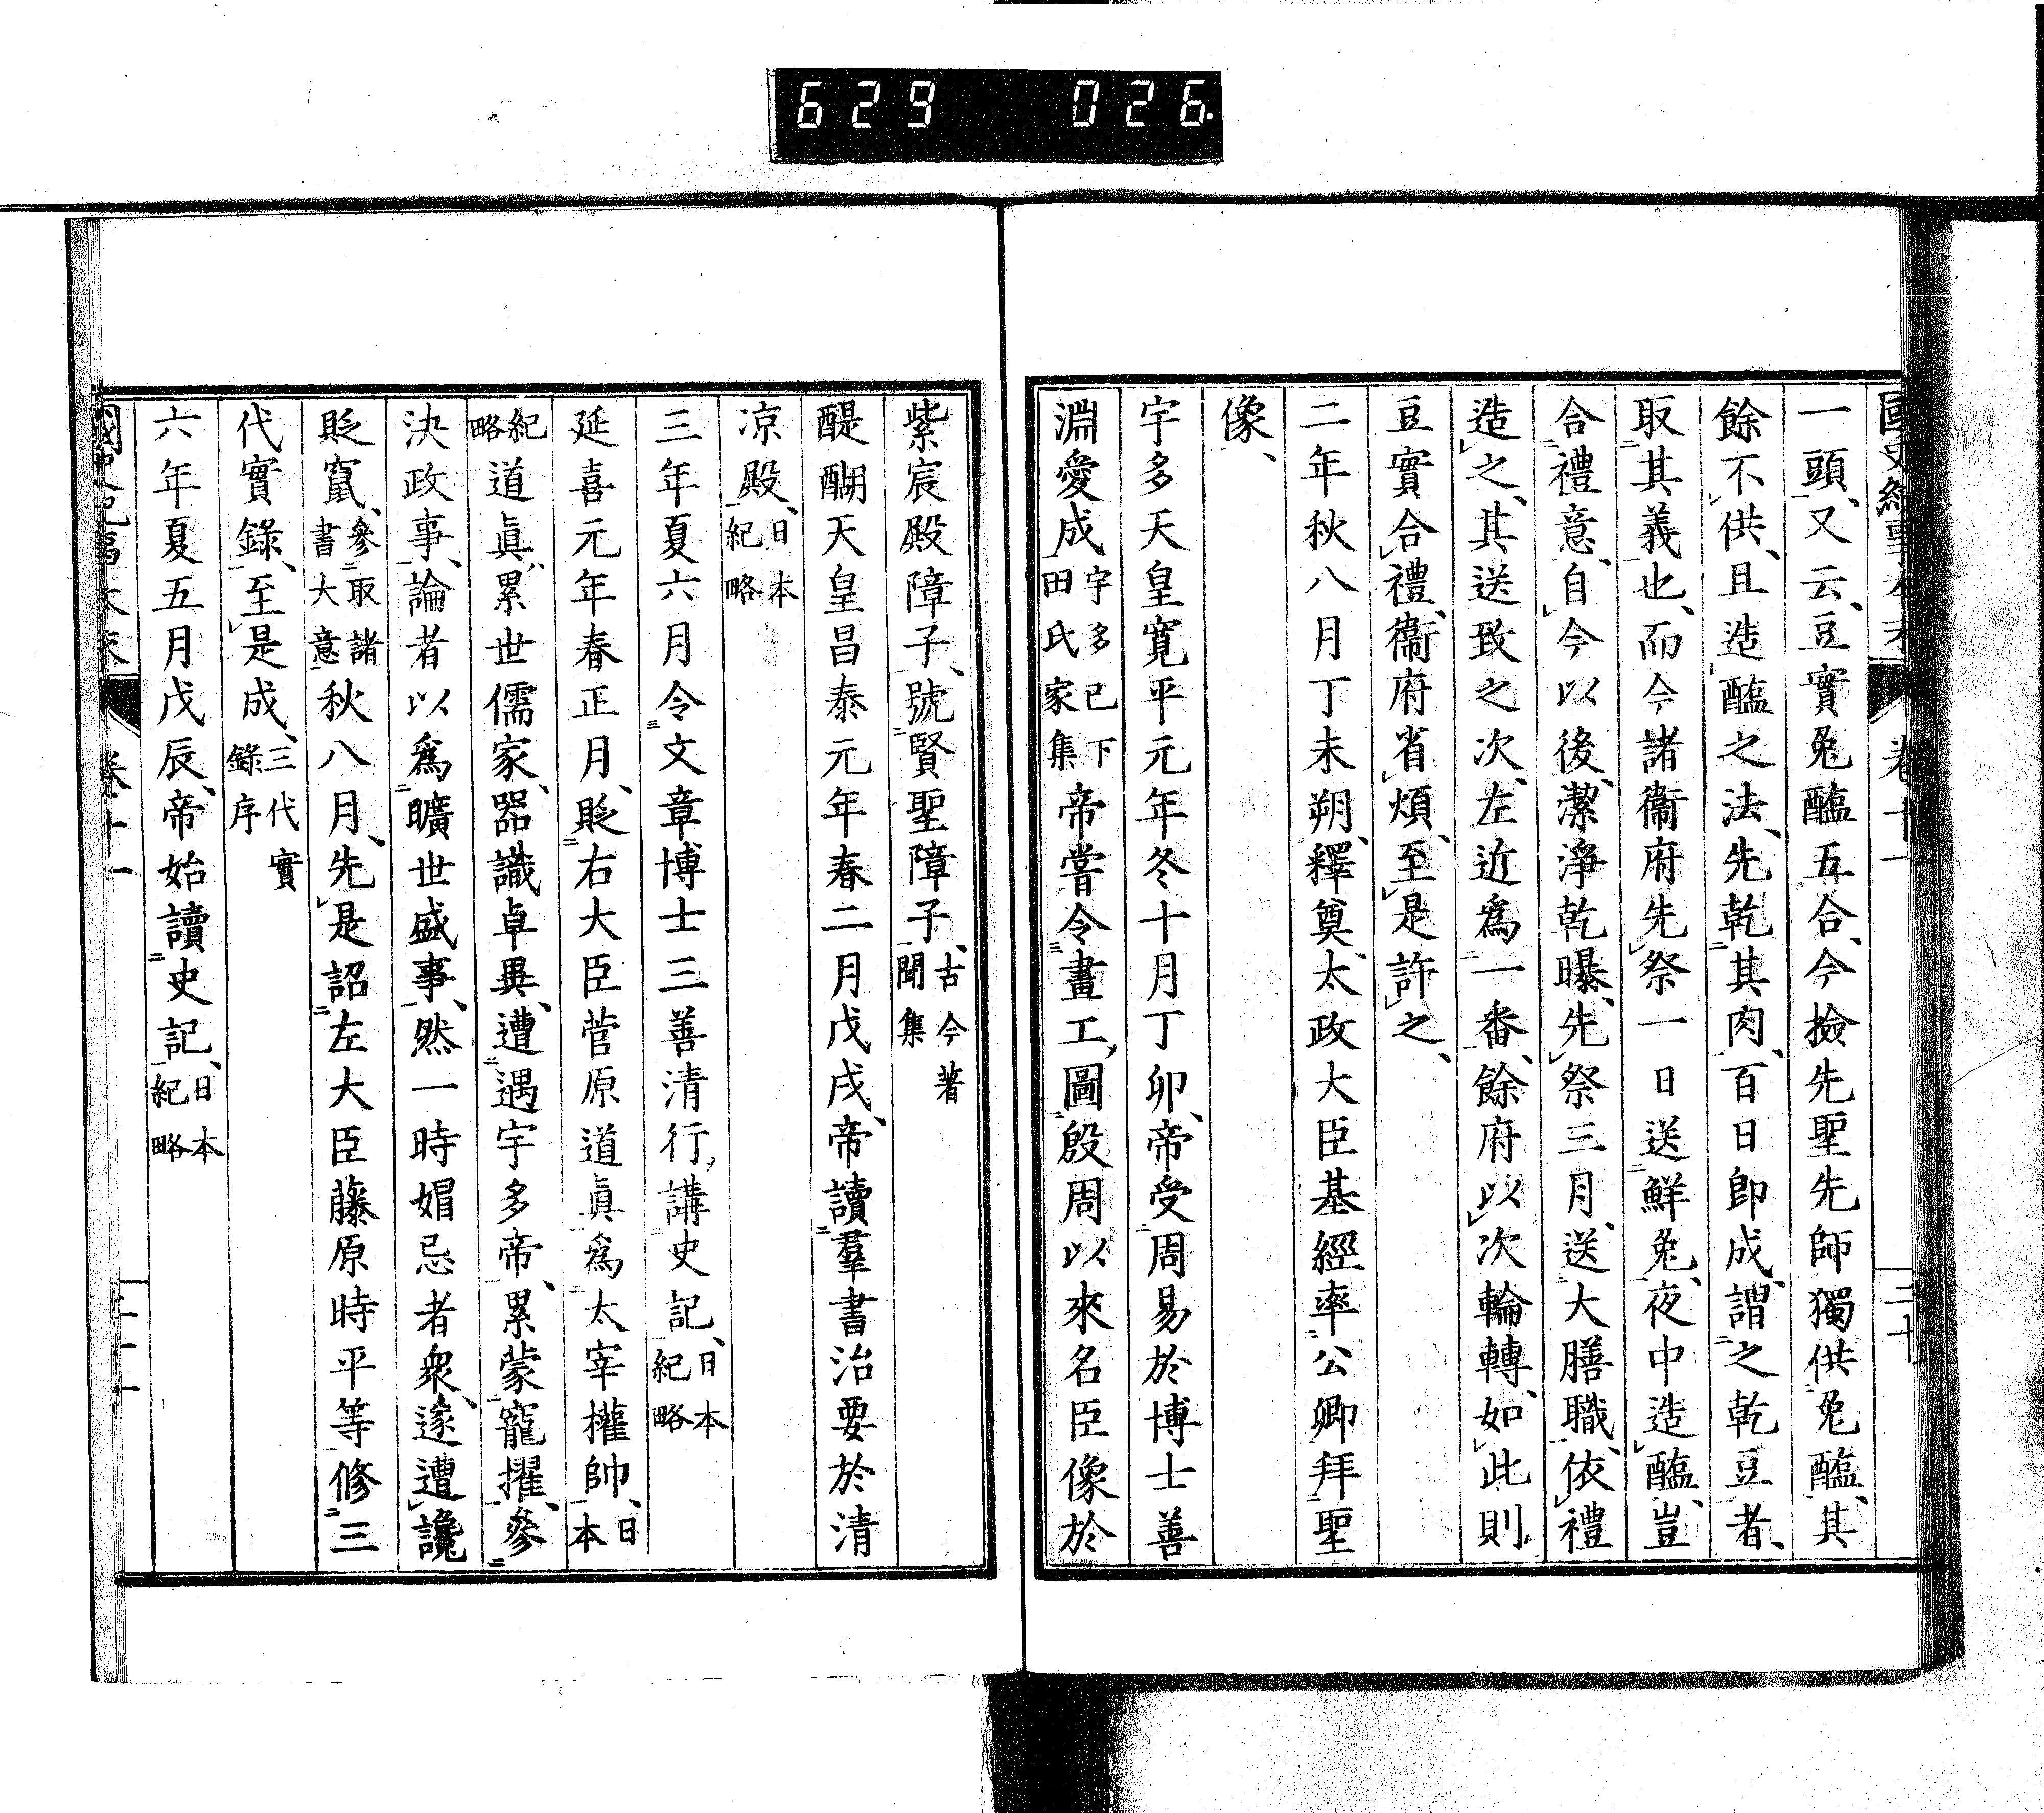 629 026
一頭、又云、豆實兔醢五合、今撿先聖先師獨供兔醢、其
餘不供、且造醢之法、先乾其肉、百日卽成、謂之乾豆者、
取其義也、而今諸衞府先祭一日送鮮兔、夜中造醢、豈
合禮意、自今以後、潔淨乾曝、先祭三月、送大膳職、依禮
造之、其送致之次、左近爲一番、餘府以次輪轉、如此則
豆實合禮、衞府省煩、至是許之、
二年秋八月丁未朔、釋奠、太政大臣基經率公卿拜聖
像、
宇多天皇寬平元年冬十月丁卯、帝受周易於博士善
淵愛成宇多已下田氏家集帝嘗令畫工圖殷周以來名臣像於
紫宸殿障子、號賢聖障子、古今著聞集
醍醐天皇昌泰元年春二月戊戌、帝讀羣書治要於清
凉殿、日本紀略
三年夏六月令文章博士三善清行講史記、日本紀略
延喜元年春正月、貶右大臣菅原道眞爲太宰權帥、日本
紀略道眞累世儒家、器識卓異、遭遇宇多帝、累蒙寵擢、參
決政事、論者以爲曠世盛事、然一時媢忌者衆、遂遭讒
貶竄、參取諸書大意秋八月、先是詔左大臣藤原時平等修三
代實錄、至是成、三代實錄序
六年夏五月戊辰、帝始讀史記、日本紀略
卷十一